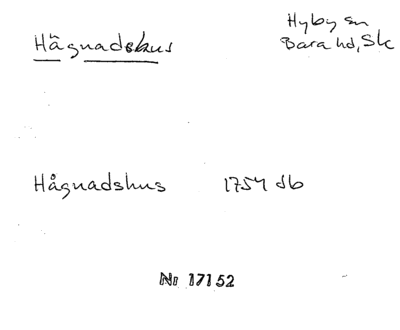 Hägnadshus
Hyby sn
Bara hd, Sk
Hågnadshus 1754 db
Nr 17152